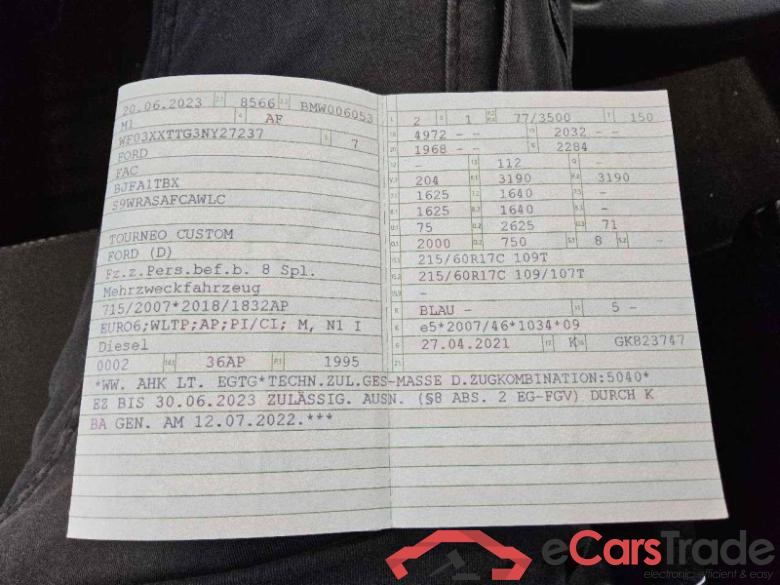 20.06.2023 8566 BMW006053
M1 AF
WF03XXTTG3NY27237 7
FORD
FAC
BJFA1TBX
S9WRASAFCAWLC
TOURNEO CUSTOM
FORD (D)
Fz.z.Pers.bef.b. 8 Spl.
Mehrzweckfahrzeug
715/2007*2018/1832AP
EURO6;WLTP;AP;PI/CI; M, N1 I
Diesel
0002 36AP 1995
2 1 77/3500 150
4972 - - 2032 - -
1968 - - 2284
- 112
204 3190 3190
1625 1640 -
1625 1640 -
75 2625 71
2000 750 8 -
215/60R17C 109T
215/60R17C 109/107T
-
BLAU - 5 -
e5*2007/46*1034*09
27.04.2021 K GK823747
*WW. AHK LT. EGTG*TECHN.ZUL.GES-MASSE D.ZUGKOMBINATION:5040*
EZ BIS 30.06.2023 ZULÄSSIG. AUSN. (§8 ABS. 2 EG-FGV) DURCH K
BA GEN. AM 12.07.2022.***
eCarsTrade
electronic, efficient & easy